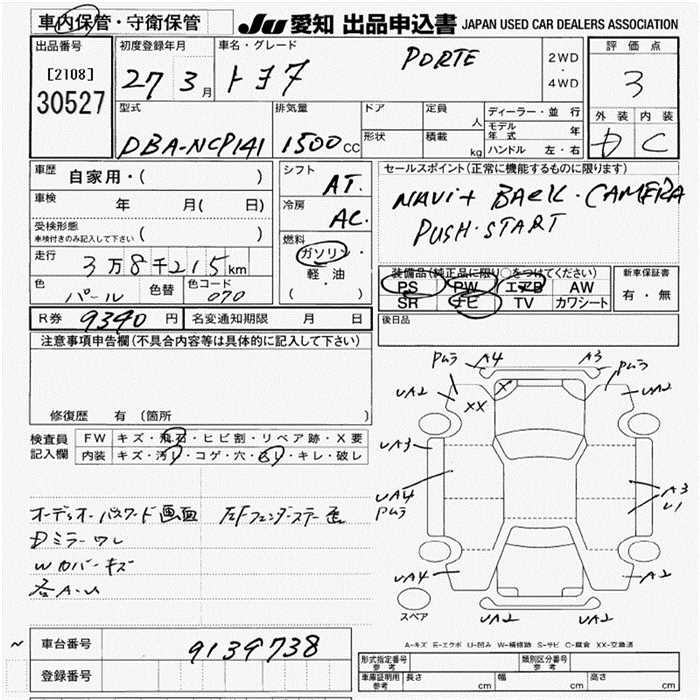 車内保管・守衛保管 JU 愛知 出品申込書 JAPAN USED CAR DEALERS ASSOCIATION
出品番号 初度登録年月 車名・グレード 評価点
[2108] 27 3月 トヨタ PORTE 2WD・4WD 3
30527
型式 排気量 ドア 定員 人 ディーラー・並行 外装 内装
モデル年式 年
DBA-NCP141 1500cc 形状 積載 kg ハンドル 左・右 D C
車歴 自家用・( ) シフト AT. セールスポイント(正常に機能するものに限ります)
車検 年 月( 日) 冷房 AC. NAVi+ BACK・CAMERA
PUSH・START
受検形態
車検付きのみ記入して下さい ( ) 燃料
走行 3万8千215km ガソリン・軽油 ( ) 装備品(純正品に限り○をつけてください) 新車保証書
PS PW エアB AW 有・無
色 パール 色替 色コード 070 SR ナビ TV カワシート
R券 9340円 名変通知期限 月 日 後日品
注意事項申告欄(不具合内容等は具体的に記入して下さい)
修復歴 有(箇所
検査員記入欄 FW キズ・飛石・ヒビ割・リペア跡・X要
内装 キズ・汚レ・コゲ・穴・スレ・キレ・破レ
Pムラ A4 A3 Pムラ
UA2 XX X UA2
UA3
UA4 A3
Pムラ U1
UA4 A2
スペア UA2 UA2
オーディオーパスワード画面
Dミラーワレ
Wカバーキズ
各A・U
A-キズ E-エクボ U-凹み W-補修跡 S-サビ C-腐食 XX-交換済
車台番号 9139738
登録番号
形式指定番号 参考 類別区分番号 参考
車庫証明用 参考 長さ cm 幅 cm 高さ cm